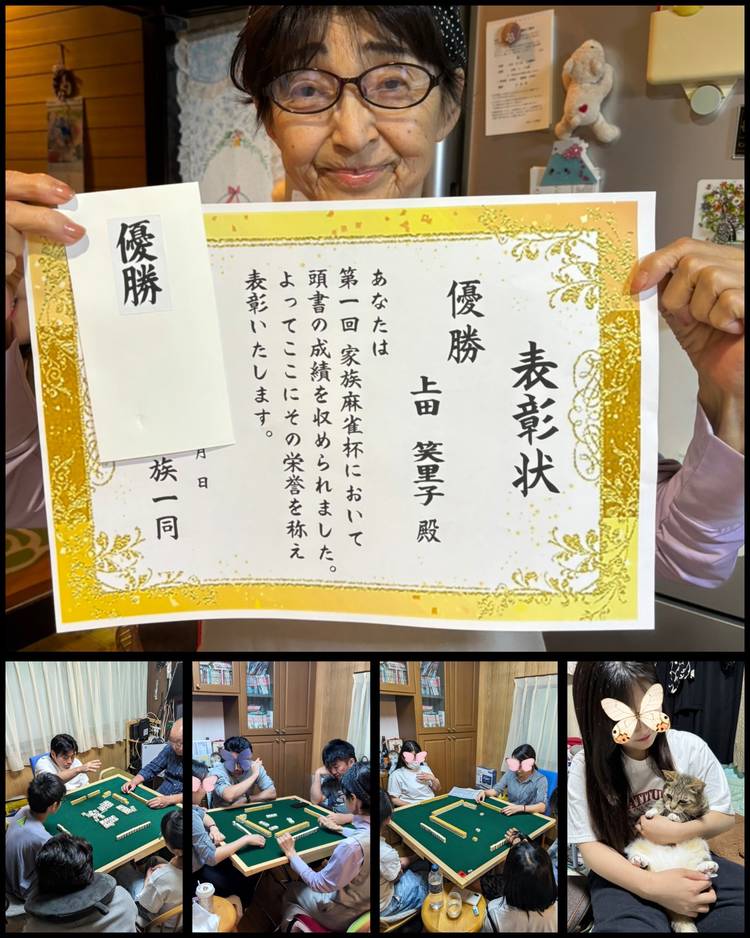 表彰状
優勝
上田 笑里子 殿
あなたは
第一回 家族麻雀杯において
頭書の成績を収められました。
よってここにその栄誉を称え
表彰いたします。
月 日
族一同
優勝